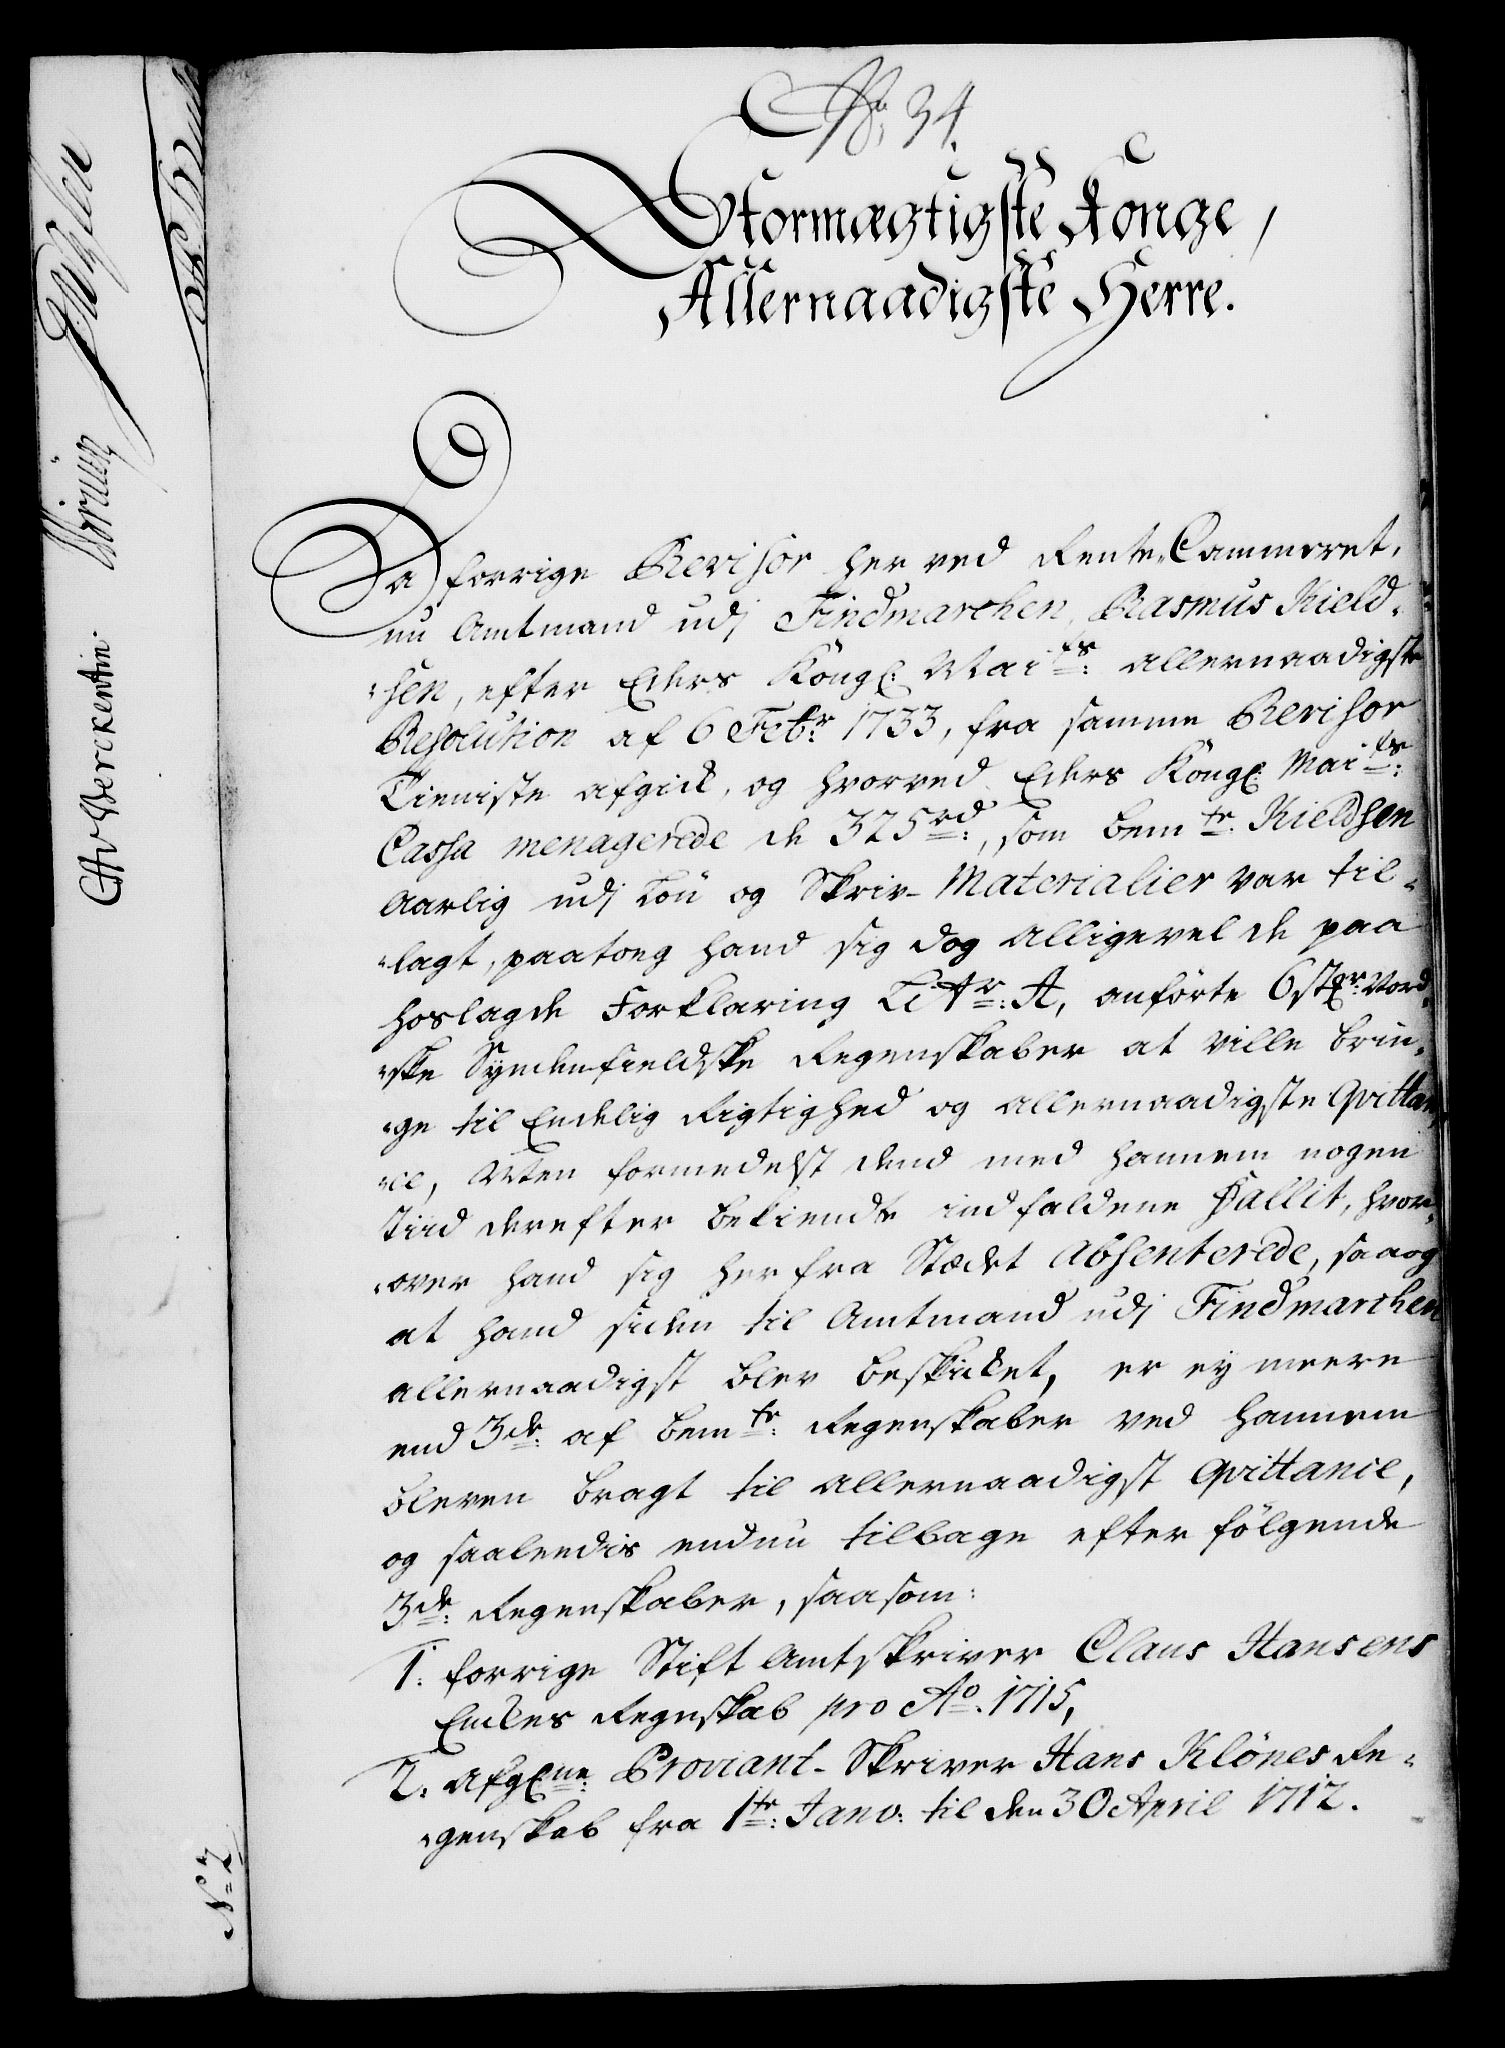 No. 34.
Stormægtigste Konge,
Allernaadigste Herre.
Da forrige Revisor her ved Rente-Cammeret,
nu Amtmand udj Findmarchen, Rasmus Kield-
-sen, efter Eders Kongl: Maits: allernaadigste
Resolution af 6 Febr: 1733, fra samme Revisor
Tieniste afgick, og hvorved Eders Kongl: Maits:
Cassa menagerede de 325rd:, som bemte: Kieldsen
Aarlig udj Løn og Skriv-Materialier var til-
-lagt, paatoeg hand sig dog alligevel de paa
hoslagde Forklaring Litr: A, anførte 6 stkr: Nord-
-ske Syndenfieldske Regenskaber at ville brin-
-ge til Endelig Rigtighed og allernaadigste Qvittan-
-ce, Men formedelst dend med hannem nogen
Tiid derefter bekiendte indfaldene Fallit, hvor-
-over hand sig her fra Stædet Absenterede, saa og
at hand siden til Amtmand udj Findmarchen
allernaadigst blev beskicket, er ey meere
end 3de: af bemte: Regenskaber ved hannem
bleven bragt til allernaadigst Qvittance,
og saaleedis endnu tilbage efterfølgende
3de: Regenskaber, saasom:
1: forrige Stift Amtskriver Claus Hansens
Enckes Regnskab pro Ao. 1715,
2: Afgl:ne: Proviant-Skriver Hans Klønes Re-
-genskab fra 1te: Janv: til den 30 April 1712.
CAvBerckentin.
No 2